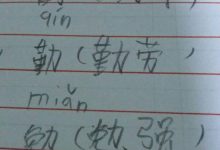 qín
勤(勤劳)
miǎn
勉(勉强)